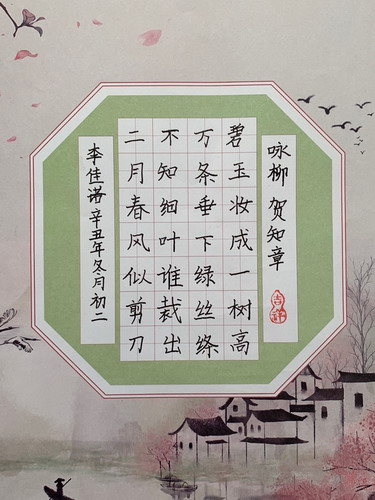 咏柳 贺知章
碧玉妆成一树高
万条垂下绿丝绦
不知细叶谁裁出
二月春风似剪刀
李佳诺辛丑年冬月初二